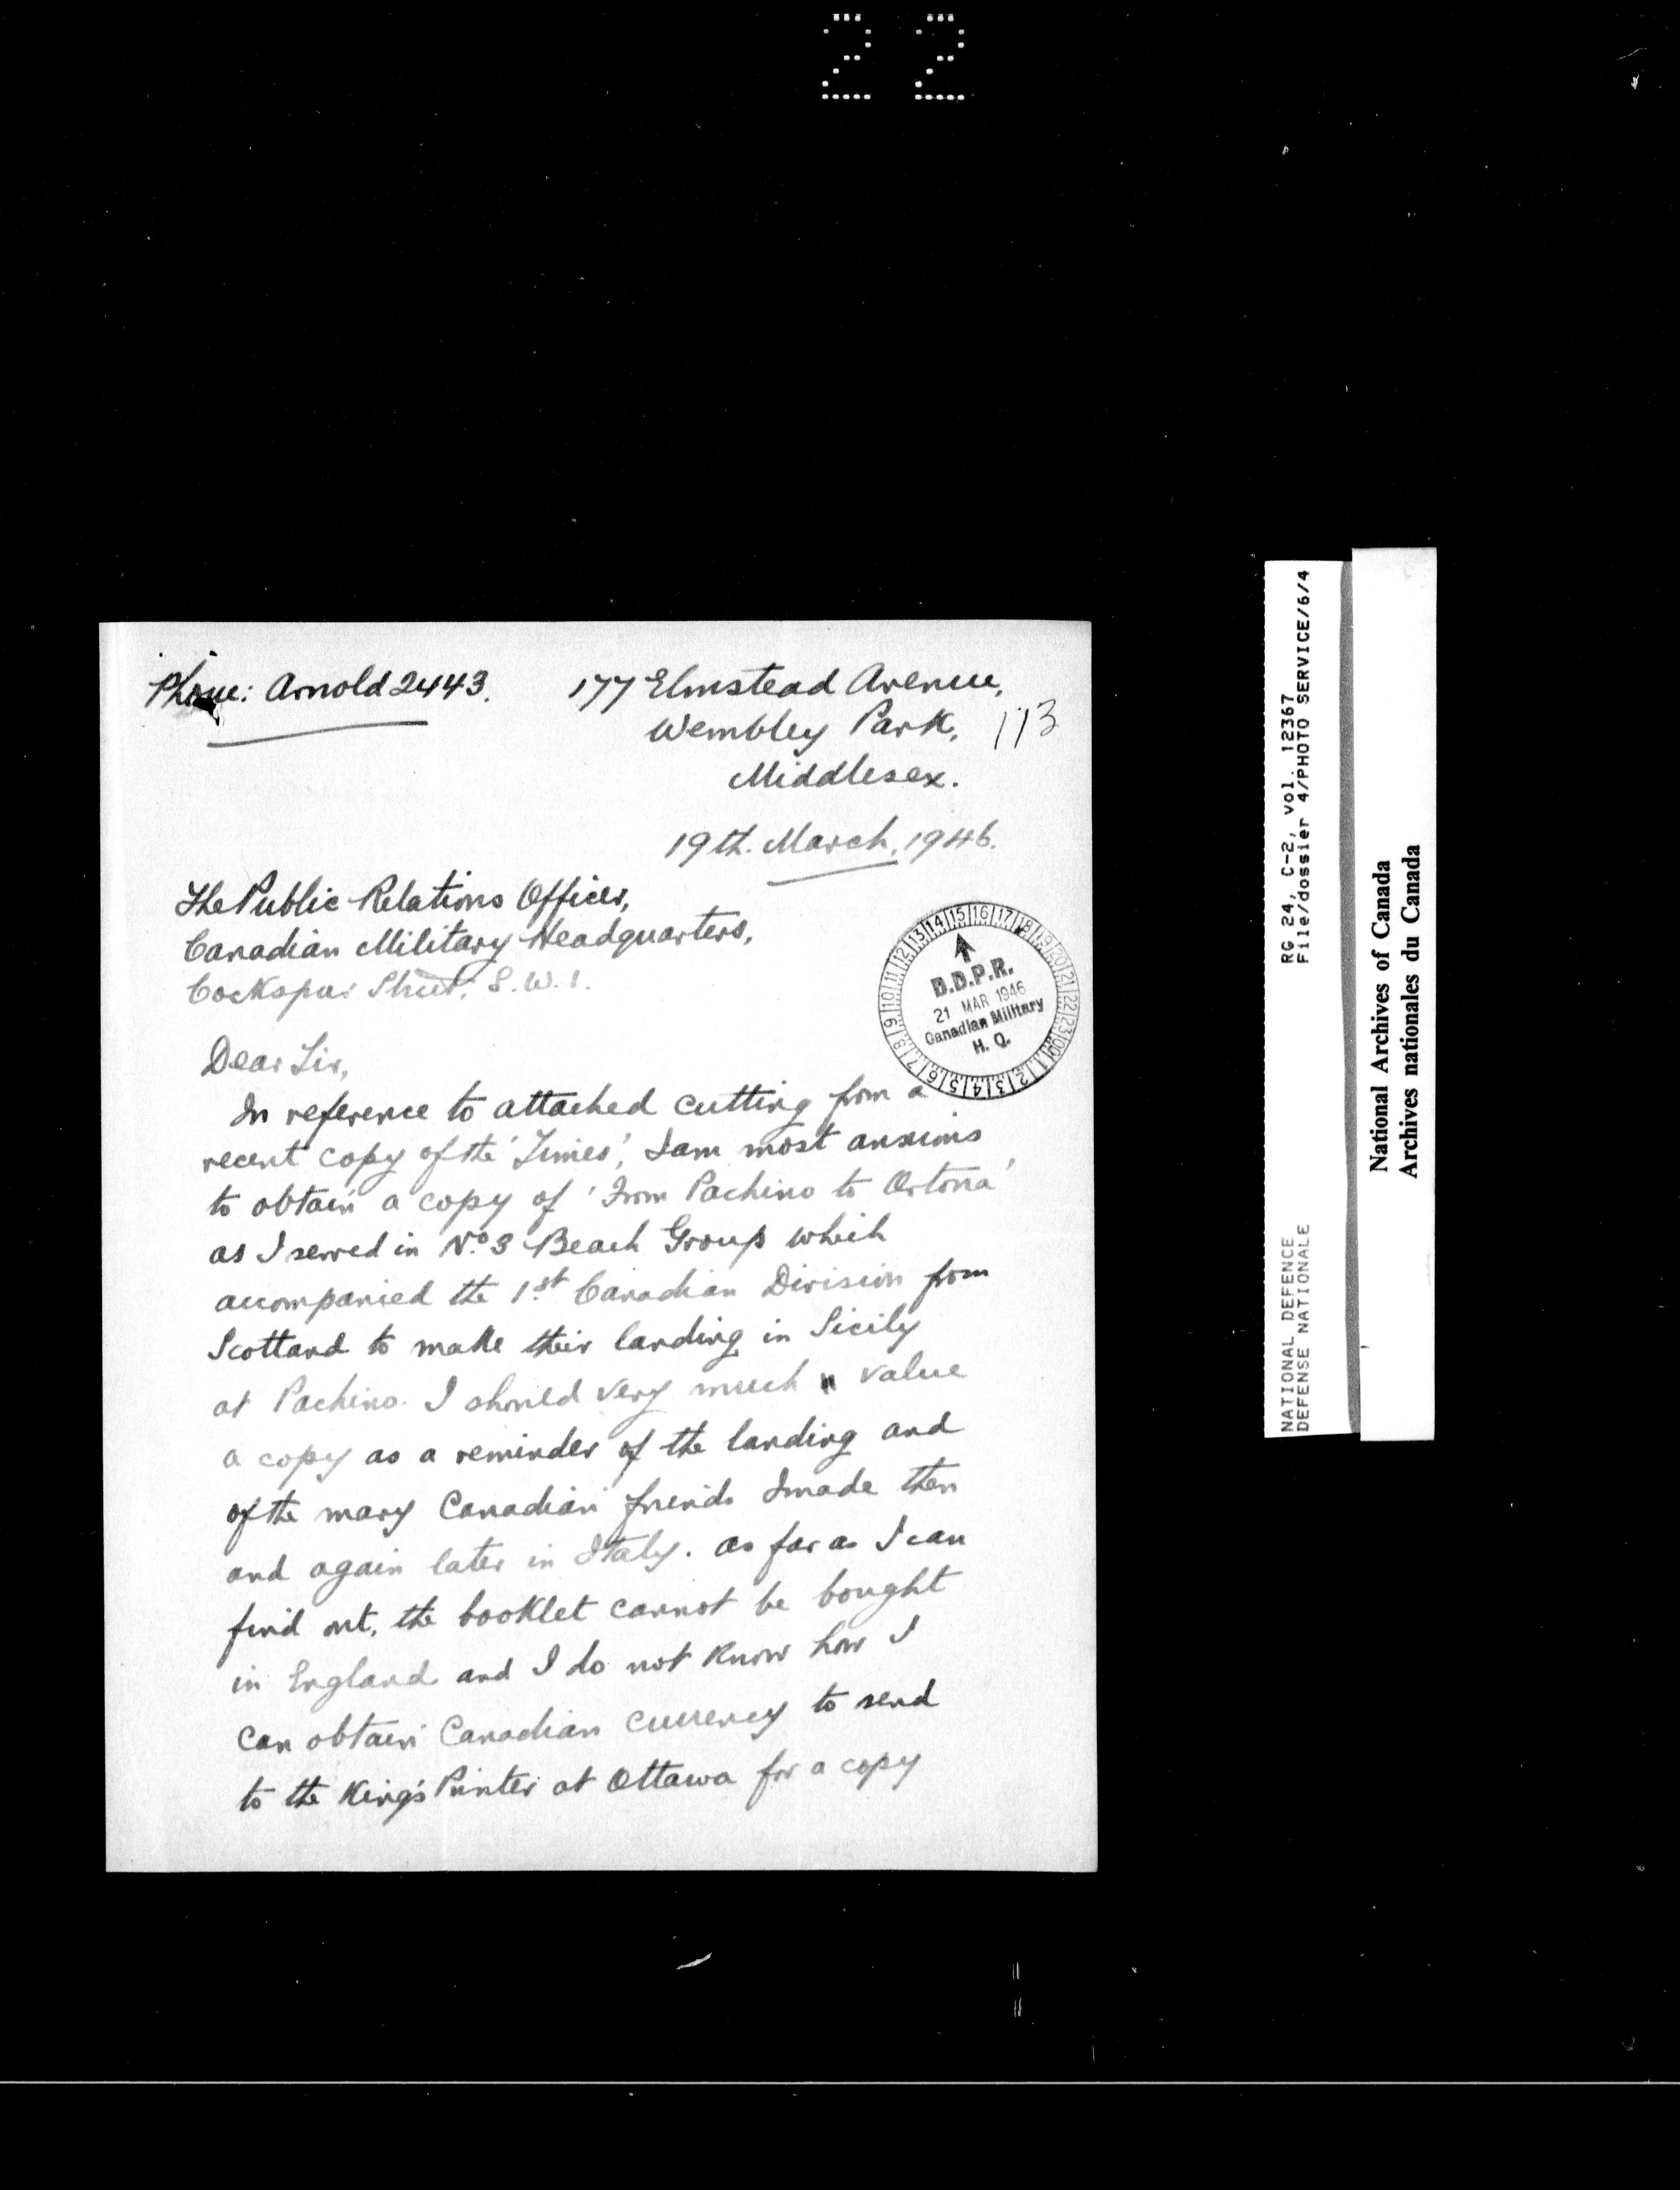 22
Phone: Arnold 2443.
177 Elmstead Avenue,
Wembley Park,
113
Middlesex.
19th. March, 1946.
The Public Relations Officer,
Canadian Military Headquarters,
Cockspur Street, S.W.1.
15 16 17 18 19 20 21 22 23 00 1 2 3 4 5 6 7 8 9 10 11 12 13 14
D.D.P.R.
21 MAR 1946
Canadian Military
H. Q.
Dear Sir,
In reference to attached cutting from a
recent copy of the 'Times', I am most anxious
to obtain a copy of 'From Pachino to Ortona'
as I served in No. 3 Beach Group which
accompanied the 1st Canadian Division from
Scotland to make their landing in Sicily
at Pachino. I should very much value
a copy as a reminder of the landing and
of the many Canadian friends I made then
and again later in Italy. As far as I can
find out, the booklet cannot be bought
in England and I do not know how I
can obtain Canadian currency to send
to the King's Printer at Ottawa for a copy
RG 24, C-2, vol. 12367
File/dossier 4/PHOTO SERVICE/6/4
NATIONAL DEFENCE
DEFENSE NATIONALE
National Archives of Canada
Archives nationales du Canada